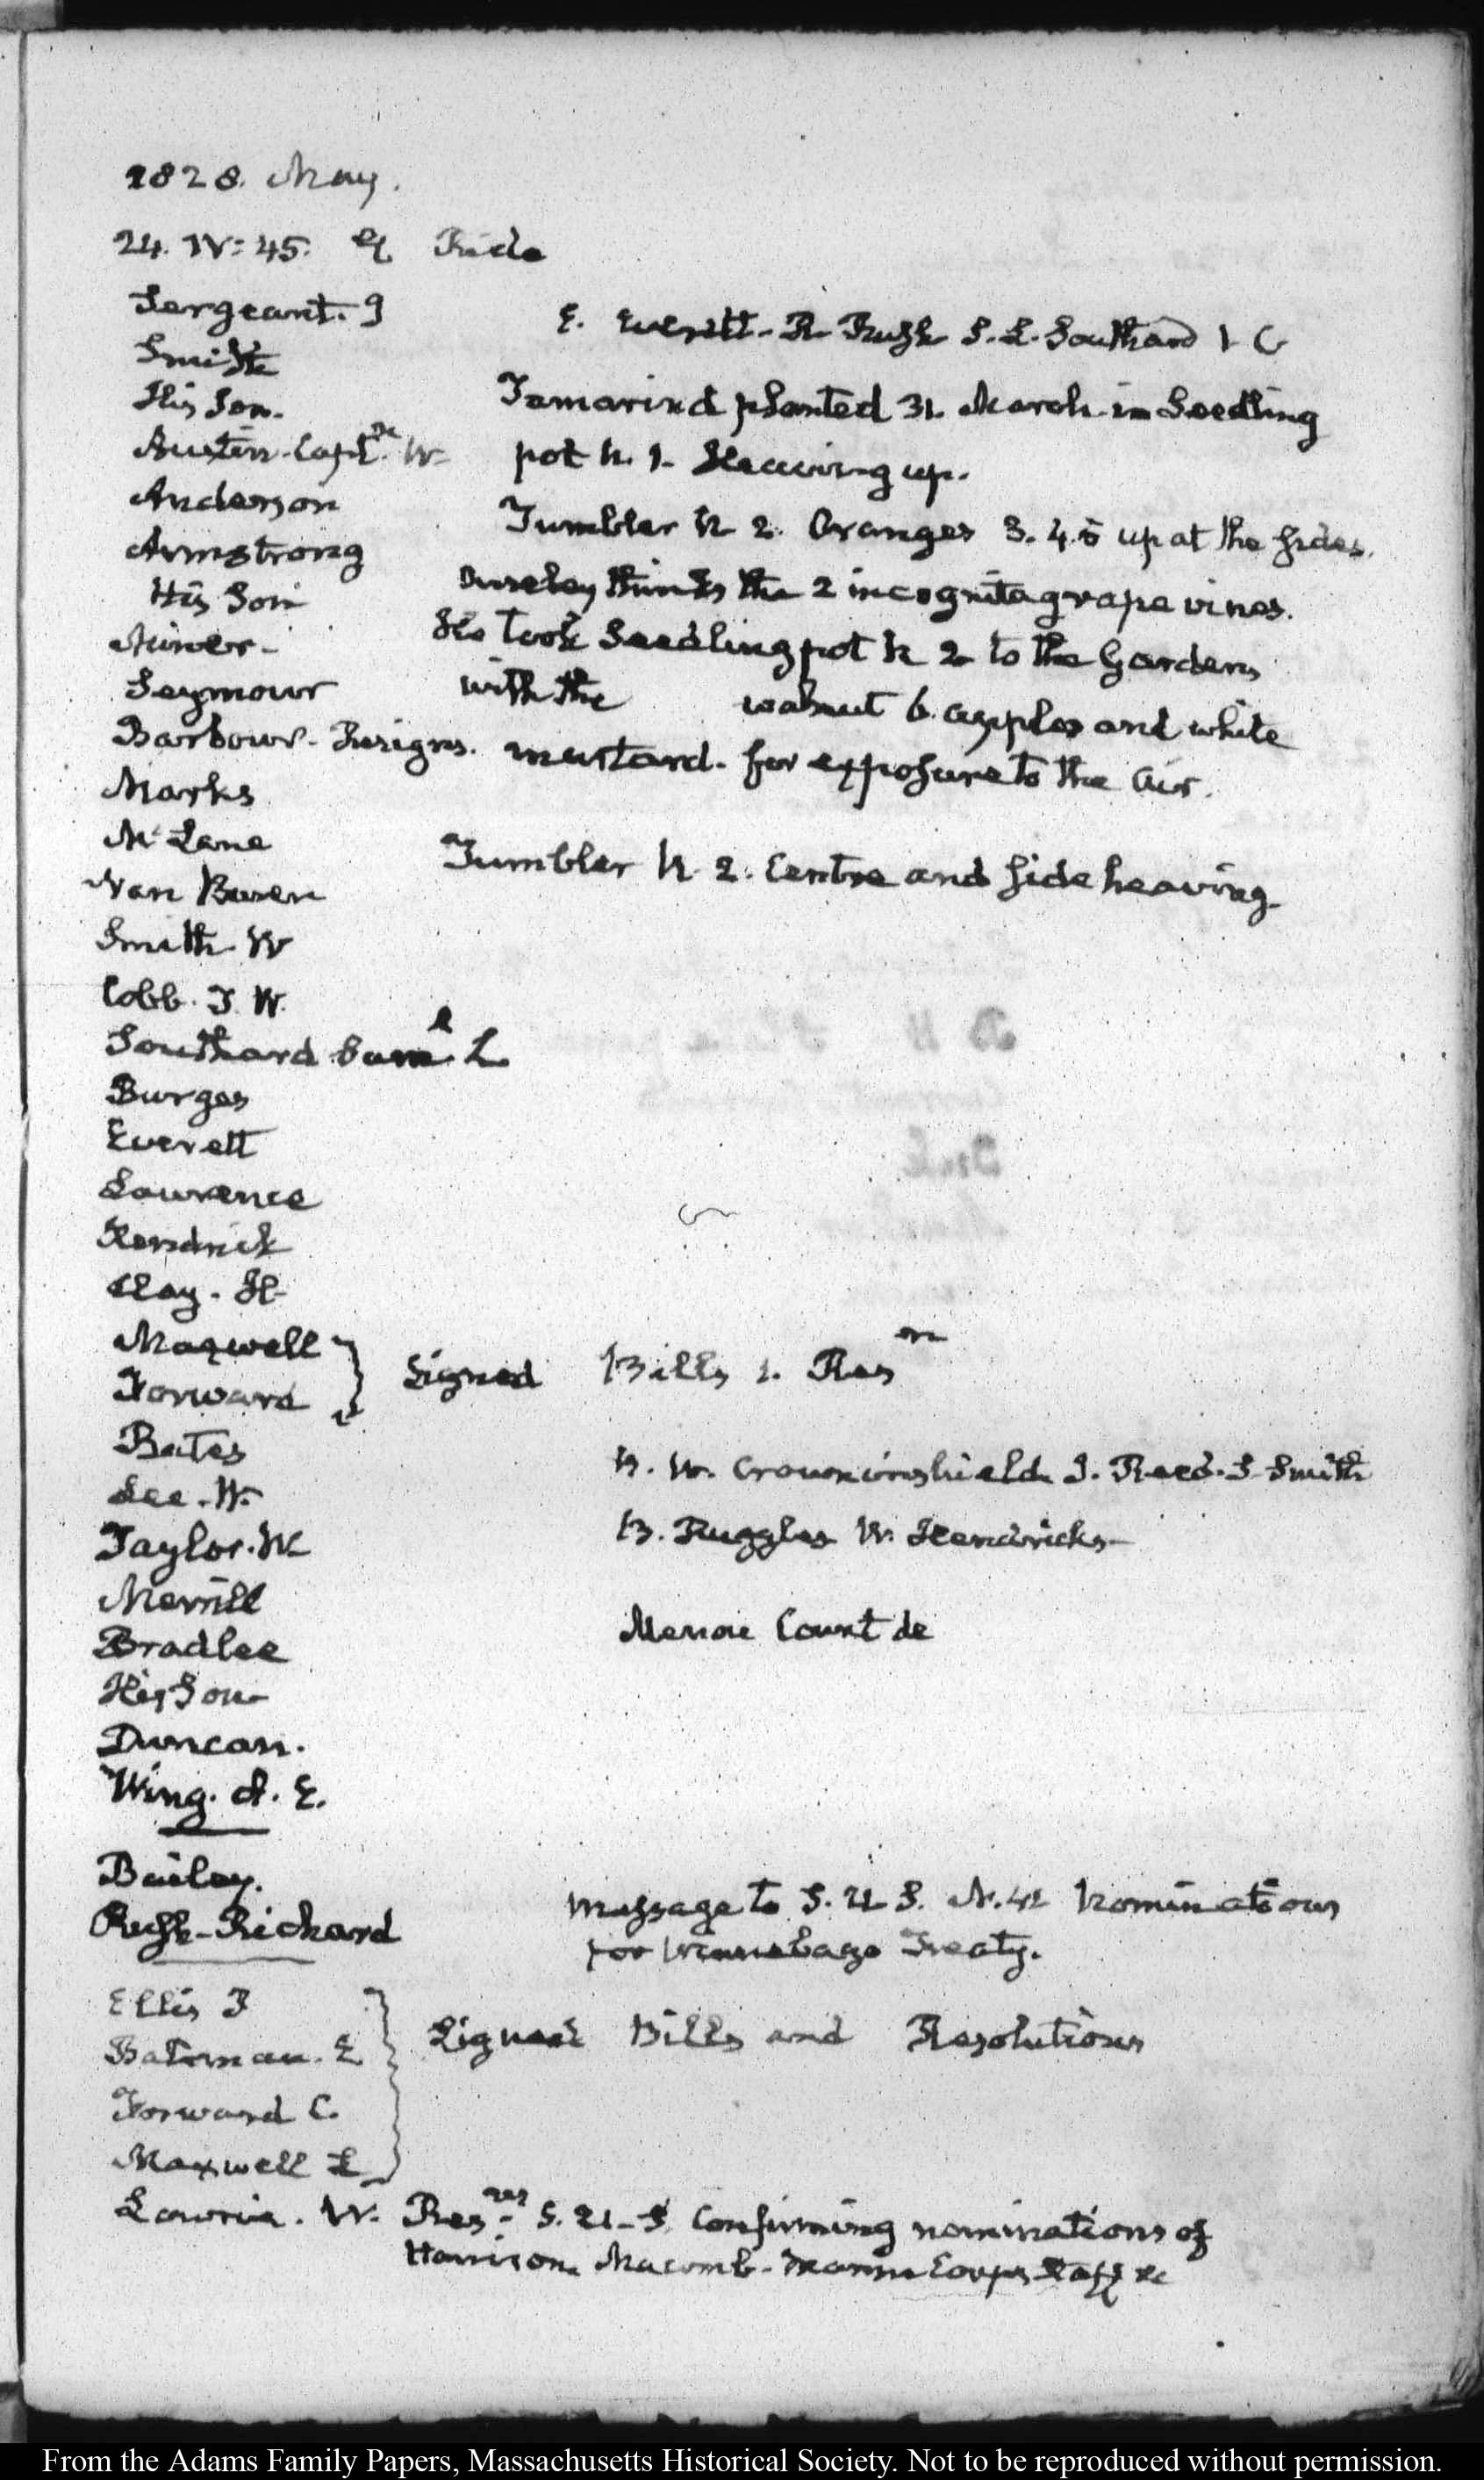 1828. May.
24. IV: 45. Ride
Sergeant. J
E. Everett - R Rush S. L. Southard
Smith
His Son.
Tamarind planted 31. March in Seedling
Austin. Captn. W-
pot N. 1. Heaving up.
Anderson
Tumbler N 2. Oranges 3. 4. 5 up at the sides.
Armstrong
Ouseley thinks the 2 incognita grape vines.
His Son
He took Seedling pot N 2 to the Garden
Miner -
with the walnut 6. apples and white
Seymour
Barbour - Resigns. mustard. for exposure to the air.
Marks
McLane
Tumbler N. 2. Centre and side heaving.
Van Buren
Smith W
Cobb. T. W.
Southard Saml. L.
Burges
Everett
Lawrence
Kendrick
Clay. H-
Maxwell
Forward
Signed Bills 1. Reson
Bates
B. W. Crowninshield J. Reed. S Smith
Lee. W.
B. Ruggles W. Hendricks
Taylor. W
Merrill
Menou Count de
Bradlee
His Son
Duncan.
Wing. A. E.
Bailey.
Message to S. U S. N. 42 Nominations
Rush - Richard
for Winnebago Treaty.
Ellis P
Bateman. E
Signed Bills and Resolutions
Forward C.
Maxwell L
Lowrie. W. Resns. S. U. S. Confirming nominations of
Harrison. Macomb - Marine Corps Staff &c
From the Adams Family Papers, Massachusetts Historical Society. Not to be reproduced without permission.